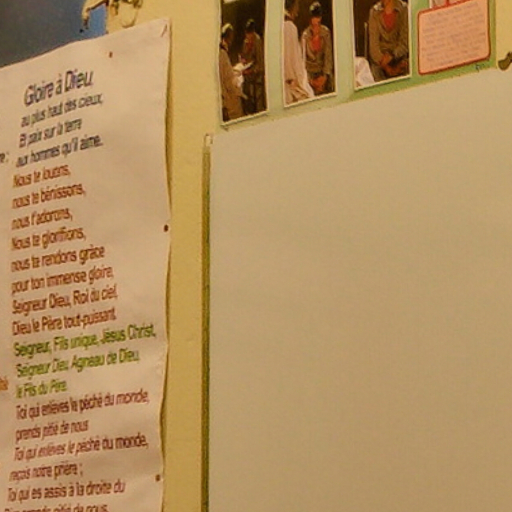 Gloire à Dieu,
au plus haut des cieux,
Et paix sur la terre
aux hommes qu'il aime.
Nous te louons,
nous te bénissons,
nous t'adorons,
Nous te glorifions,
nous te rendons grâce
pour ton immense gloire,
Seigneur Dieu, Roi du ciel,
Dieu le Père tout-puissant.
Seigneur, Fils unique, Jésus Christ,
Seigneur Dieu, Agneau de Dieu,
le Fils du Père.
Toi qui enlèves le péché du monde,
prends pitié de nous
Toi qui enlèves le péché du monde,
reçois notre prière ;
Toi qui es assis à la droite du
prends pitié de nous.